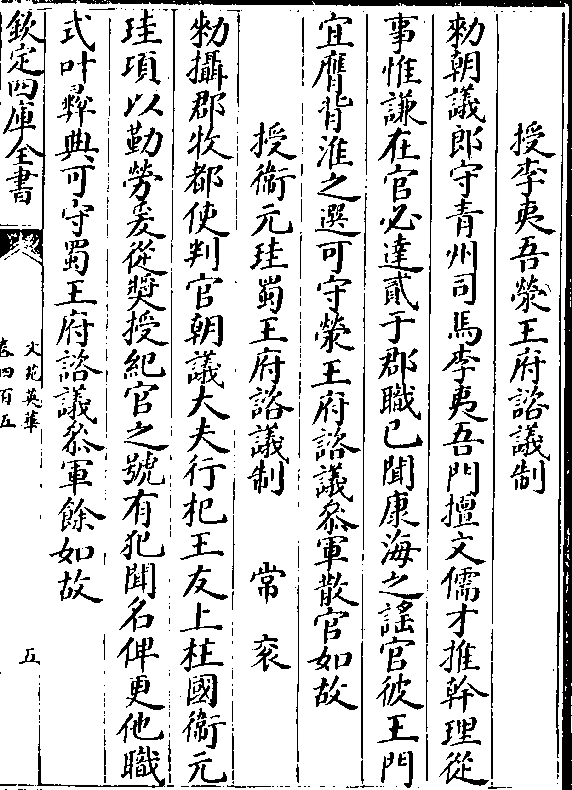 授李夷吾榮王府諮議制
勑朝議郎守青州司馬李夷吾門擅文儒才推幹理從
事惟謙在官必達貳于郡職已聞康海之謡官彼王門
宜膺背淮之選可守榮王府諮議叅軍散官如故
授衞元珪蜀王府諮議制 常衮
勑攝郡牧都使判官朝議大夫行杞王友上柱國衞元
珪項以勤勞爰從奬授紀官之號有犯聞名俾更他職
式叶彛典可守蜀王府諮議叅軍餘如故
欽定四庫全書
文苑英華
卷四百五
五